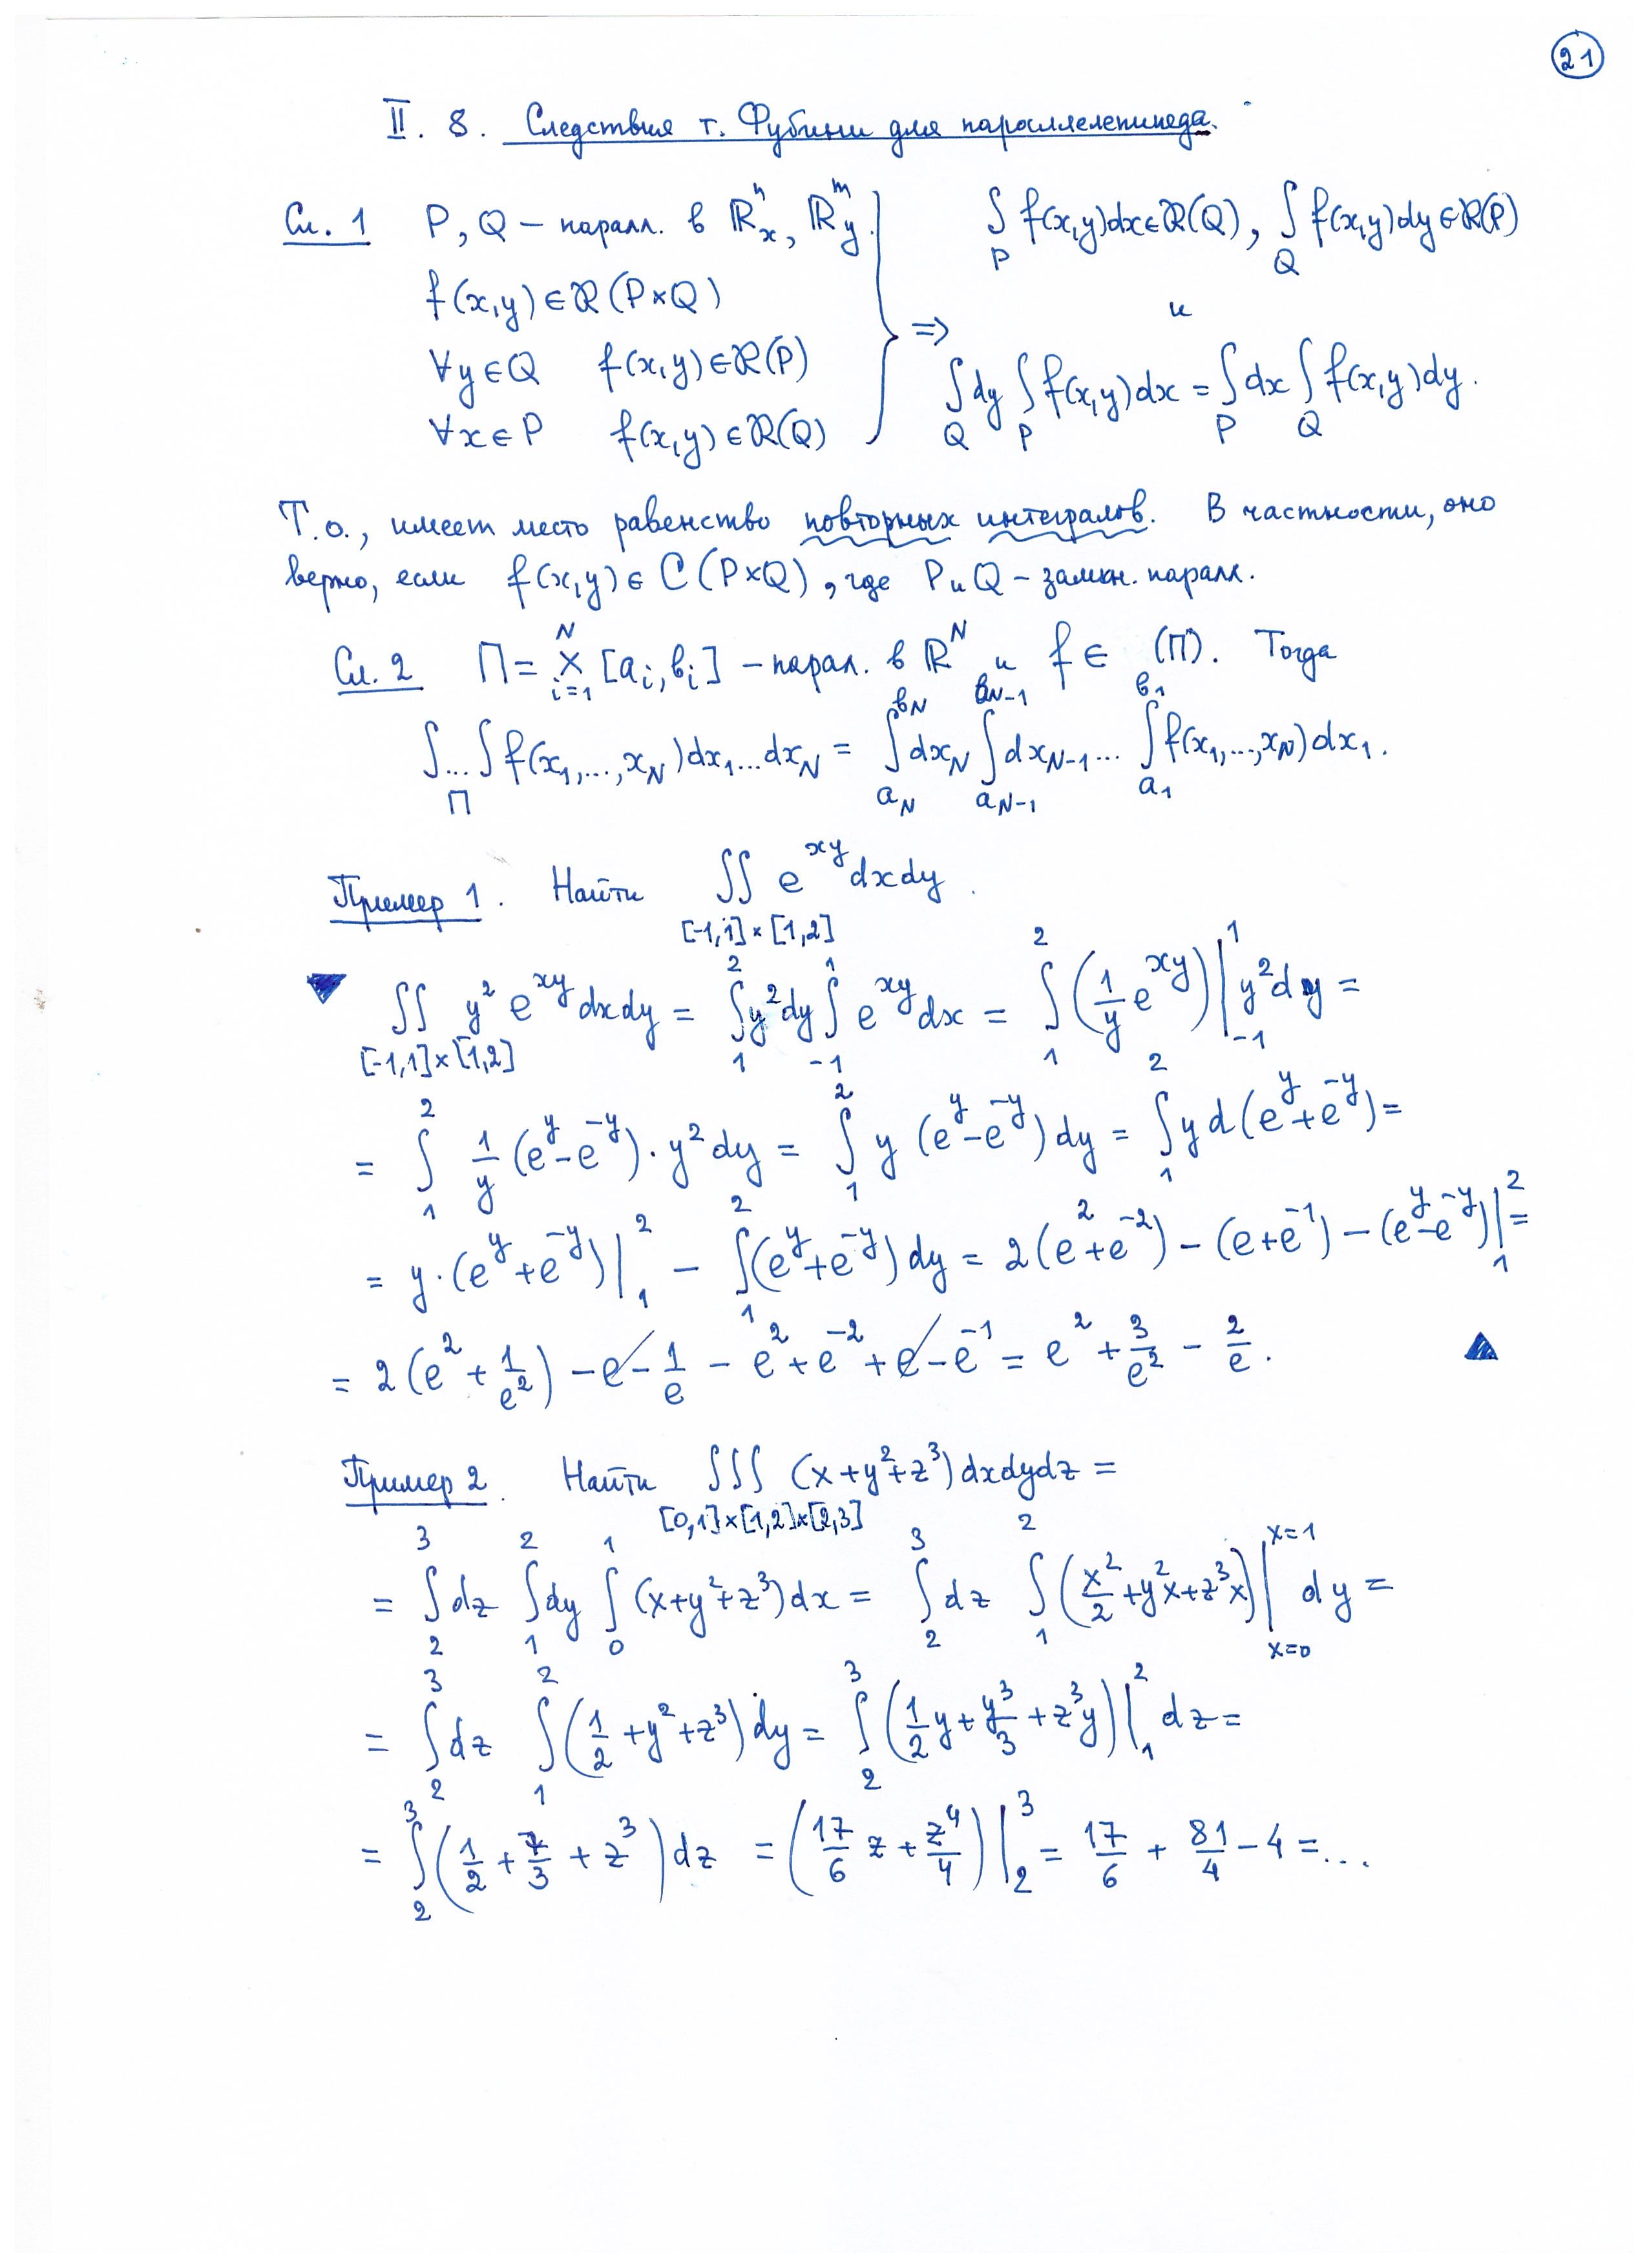 21
II. 8. Следствия т. Фубини для параллелепипеда.
Сл. 1 P, Q – паралл. в ℝⁿₓ, ℝᵐ_y. ∫_P f(x,y)dx∈ℛ(Q), ∫_Q f(x,y)dy∈ℛ(P)
f(x,y)∈ℛ(P×Q) и
∀y∈Q f(x,y)∈ℛ(P) ⇒ ∫_Q dy ∫_P f(x,y)dx = ∫_P dx ∫_Q f(x,y)dy.
∀x∈P f(x,y)∈ℛ(Q)
Т.о., имеет место равенство повторных интегралов. В частности, оно
верно, если f(x,y)∈C(P×Q), где P и Q – замкн. паралл.
Сл. 2 Π = ×_{i=1}^{N} [a_i, b_i] – парал. в ℝ^N и f∈ (Π). Тогда
∫...∫_Π f(x_1,...,x_N)dx_1...dx_N = ∫_{a_N}^{b_N} dx_N ∫_{a_{N-1}}^{b_{N-1}} dx_{N-1}... ∫_{a_1}^{b_1} f(x_1,...,x_N)dx_1.
Пример 1. Найти ∬_{[-1,1]×[1,2]} e^{xy}dxdy.
▼ ∬_{[-1,1]×[1,2]} y² e^{xy}dxdy = ∫_1^2 y²dy ∫_{-1}^1 e^{xy}dx = ∫_1^2 (1/y e^{xy})|_{-1}^1 y²dy =
= ∫_1^2 1/y (e^y – e^{-y})·y²dy = ∫_1^2 y (e^y – e^{-y})dy = ∫_1^2 y d(e^y + e^{-y}) =
= y·(e^y + e^{-y})|_1^2 – ∫_1^2 (e^y + e^{-y})dy = 2(e² + e^{-2}) – (e + e^{-1}) – (e^y – e^{-y})|_1^2 =
= 2(e² + 1/e²) – e – 1/e – e² + e^{-2} + e – e^{-1} = e² + 3/e² – 2/e. ▲
Пример 2. Найти ∭_{[0,1]×[1,2]×[2,3]} (x+y²+z³)dxdydz =
= ∫_2^3 dz ∫_1^2 dy ∫_0^1 (x+y²+z³)dx = ∫_2^3 dz ∫_1^2 (x²/2 + y²x + z³x)|_{x=0}^{x=1} dy =
= ∫_2^3 dz ∫_1^2 (1/2 + y² + z³)dy = ∫_2^3 (1/2 y + y³/3 + z³y)|_1^2 dz =
= ∫_2^3 (1/2 + 7/3 + z³)dz = (17/6 z + z⁴/4)|_2^3 = 17/6 + 81/4 – 4 = ...